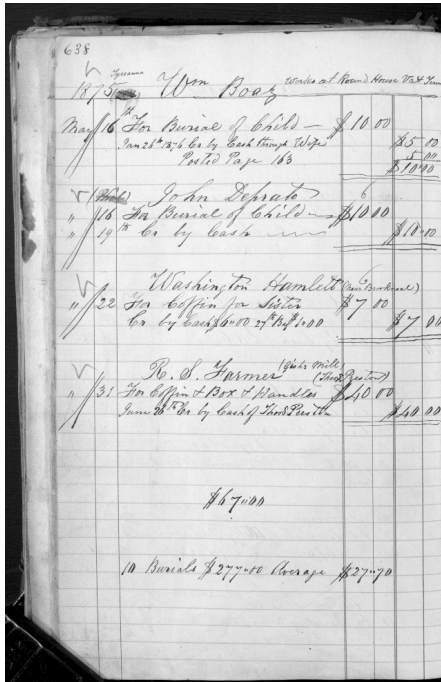 638
1875 Wm Boaz works at Round House Va & Tenn
May 16th For Burial of Child — $10 00
Jan 26th 1876 Cr by Cash through Wife $5 00
Posted Page 163 5 00
$10"00
John Deprato 6
" 16 For Burial of Child — $10 00
" 19th Cr by Cash $10"00
Washington Hamlett (
" 22 For Coffin for Sister $7 00
Cr by Cash $6"00 27th $1"00 $7 00
R. S. Farmer Mill
" 31 For Coffin & Box & Handles $40 00
June 26th Cr by Cash of $40 00
$67"00
10 Burials $277"00 Average $27"70